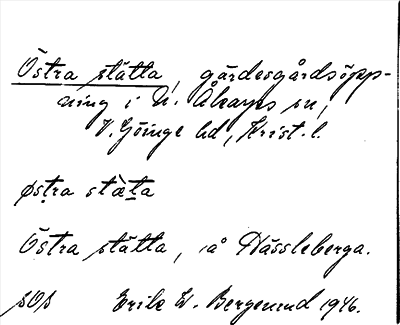 Östra stätta, gärdesgårdsöpp-
ning i N. Åkarps sn,
V. Göinge hd, Krist. l.
østra stæ̀ta
Östra stätta, å Hässleberga.
sOs Erik W. Bergmund 1946.